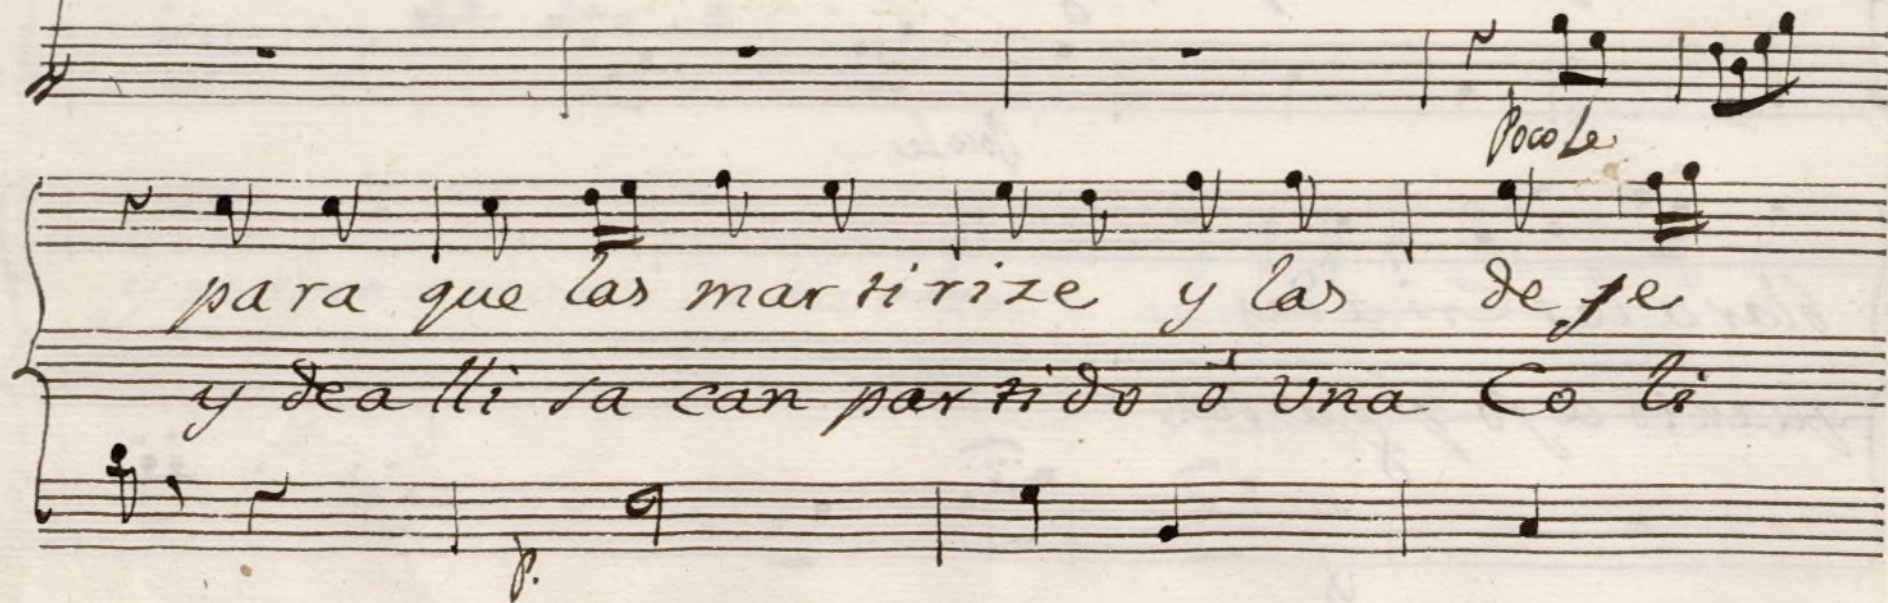 Poco Le
para que las mar ti rize y las de se
y dea lli sa can par ti do ó una Co li
p.